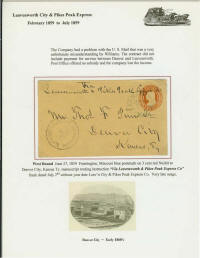 Leavenworth City & Pikes Peak Express
February 1859 to July 1859
The Company had a problem with the U. S. Mail that was a very
unfortunate misunderstanding by Williams. The contract did not
include payment for service between Denver and Leavenworth.
Post Office offered no subsidy and the company lost the income.
Via
Leavenworth & Pikes Peak Express
Mr. Thos. F.
Denver City
Kansas Ty
West Bound June 27, 1859 Farmington, Missouri blue postmark on 3 cent red
Denver City, Kansas Ty. manuscript routing instruction "Via Leavenworth & Pikes Peak Express Co"
dated July 2nd without year date Leav'n City & Pikes Peak Express Co. Very late usage.
Denver City – Early 1860's